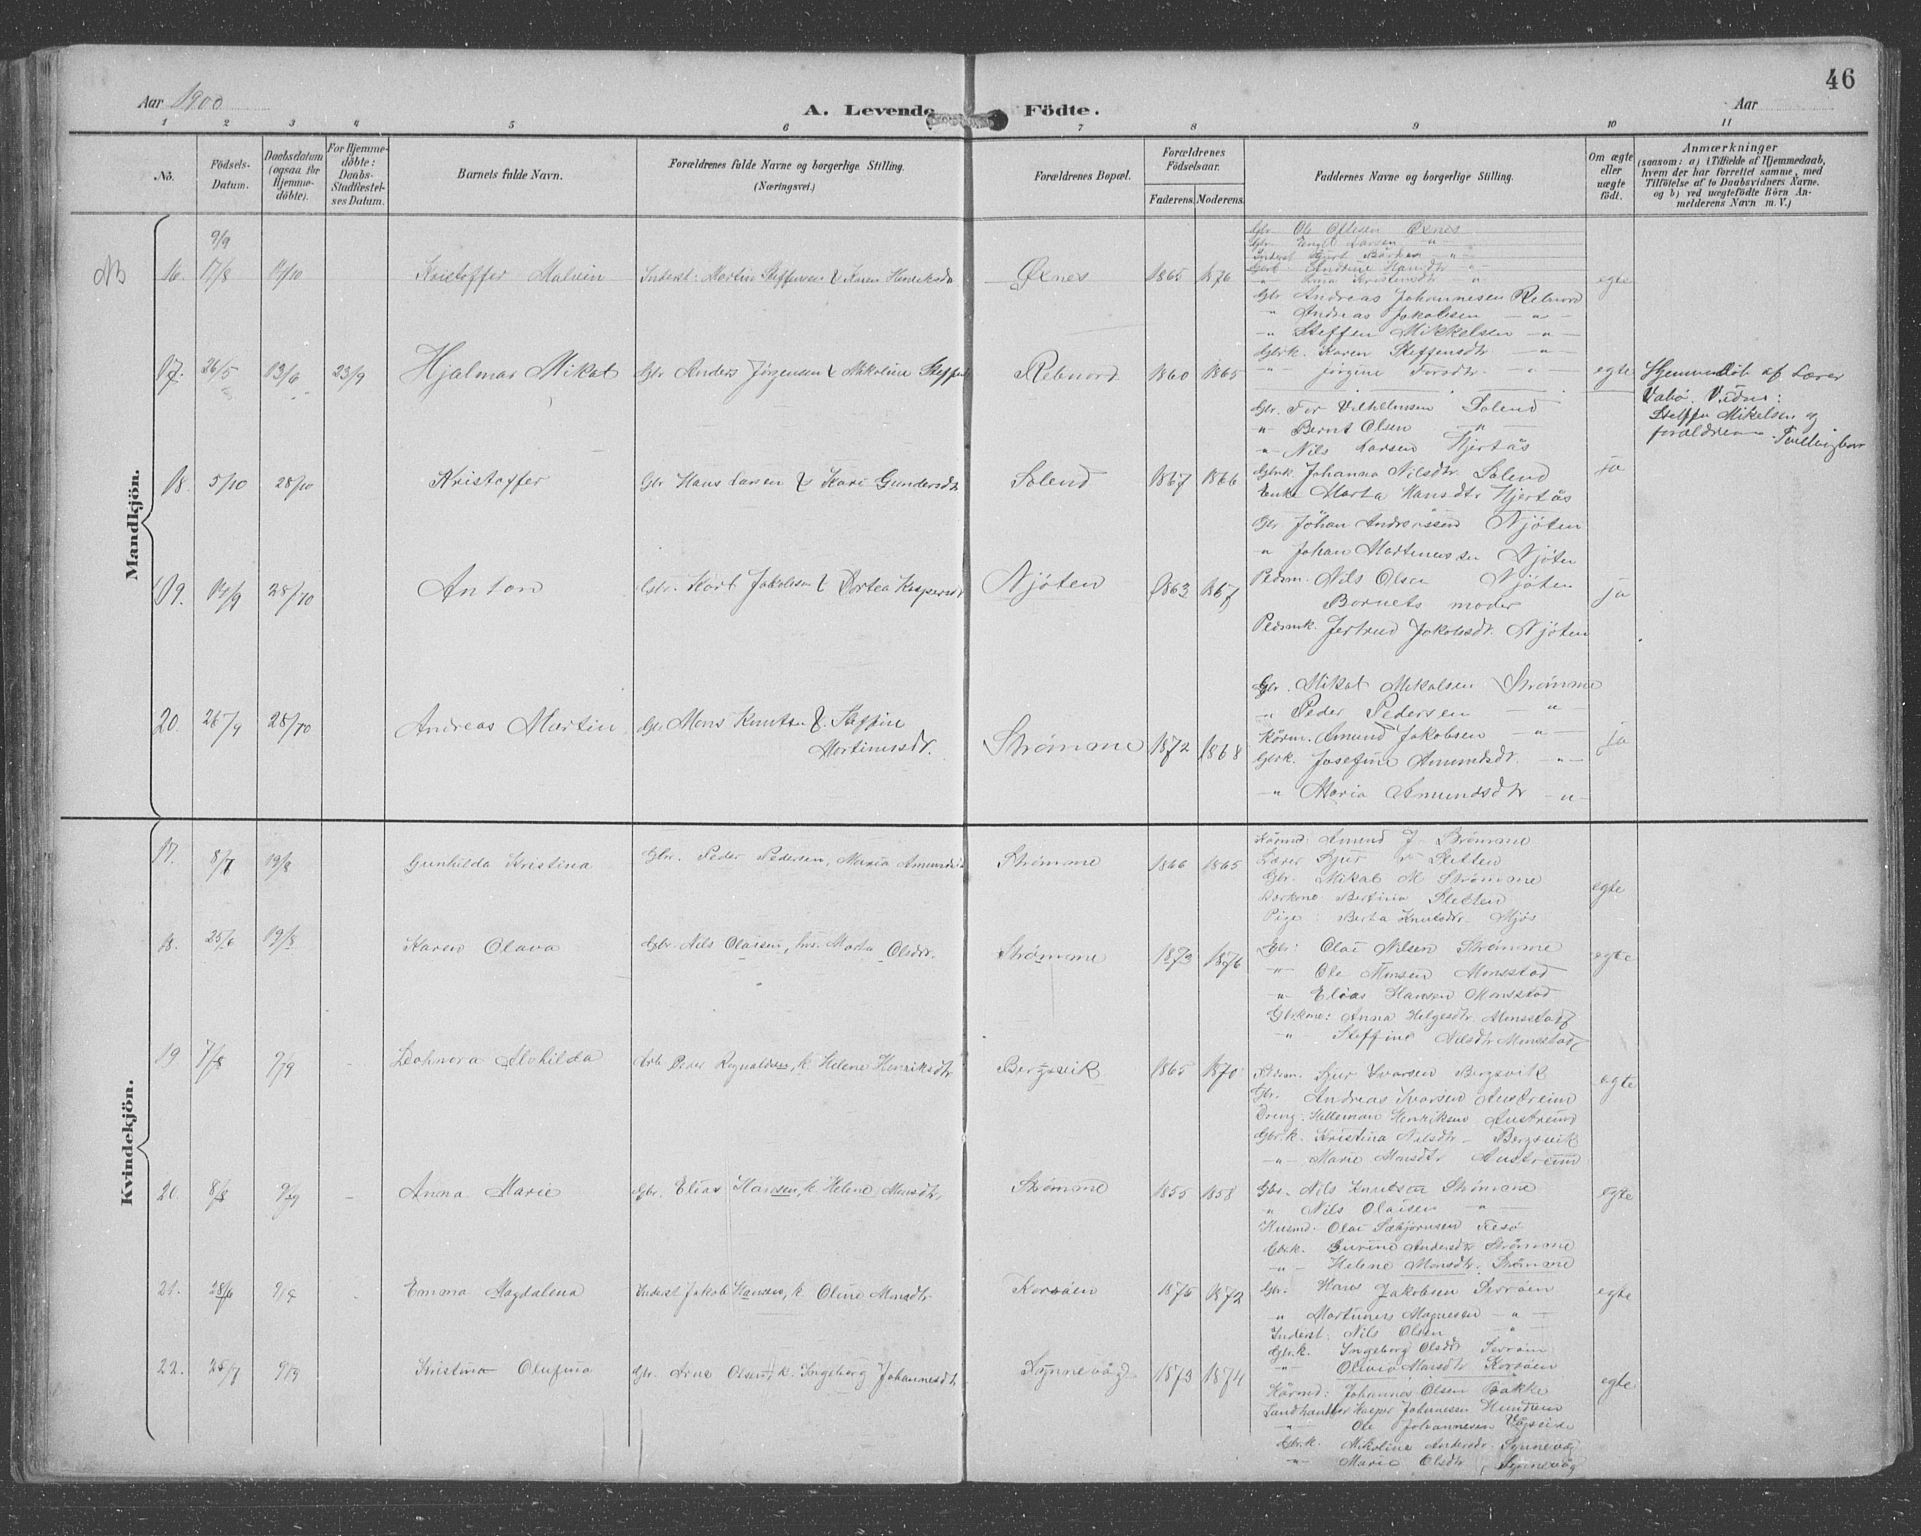 46
Aar 1900
A. Levende Födte.
Aar
1 2 3 4 5 6 7 8 9 10 11
No.
Födsels-Datum.
Daabsdatum (ogsaa for Hjemme-döbte).
For Hjemme-döbte: Daabs-Stadfæstel-ses Datum.
Barnets fulde Navn.
Forældrenes fulde Navne og borgerlige Stilling. (Næringsvei.)
Forældrenes Bopæl.
Forældrenes Födselsaar.
Faderens. Moderens.
Faddernes Navne og borgerlige Stilling.
Om ægte eller uægte födt.
Anmærkninger
(saasom: a) i Tilfælde af Hjemmedaab, hvem der har forrettet samme, med Tilföielse af to Daabsvidners Navne, og b) ved uægtefödte Börn An-melderens Navn m. V.)
Mandkjön.
NB 16. 9/9 17/8 14/10 Kristoffer Malvin Inderst. Martin Steffensen & Karen Henriksdr Øxnes 1865 1876 egte
Gbr. Ole Olsen Øxnes
Gbr. Engel Larsen -"-
17. 26/5 13/6 23/9 Hjalmar Mikal Gbr Anders Jørgensen & Mikoline Steffensd Rebnord 1860 1865 egte
Gbr Andreas Johannesen Rebnord
" Andreas Jakobsen -"-
" Steffen Mikkelsen -"-
Gbrk. Karen Steffensdtr -"-
-"- Jørgine -"-
Hjemmedöbt af Lærer
Vabø. Vidner:
Steffen Mikelsen og
forældrene. Tvillingbarn
18. 5/10 28/10 Kristoffer Gbr Hans Larsen & Kari Gundersdtr Solend 1867 1866 ja
Gbr. Vilhelmsen Solend
" Bernt Olsen "
" Nils Larsen Hjertås
Gbrk Johanna Nilsdtr. Solend
Enke Marta Hansdtr Hjertås
19. 14/9 28/10 Anton Gbr. Kort Jakobsen & Dortea Kaspersdr Njøten 1863 1867 ja
Gbr Johan Andreassen Njøten
" Johan Martinussen Njøten
Pedsm. Nils Olsen Njøten
Barnets moder
Jertrud Jakobsdtr. Njøten
20. 26/9 28/10 Andreas Martin Gbr Mons Knutsen & Steffine
Mortinusdtr. Strømme 1872 1868 ja
Gbr. Mikal Mikalsen Strømme
" Peder Pedersen -"-
Kårm. Amund Jakobsen -"-
Gbrk. Josefine Amundsdtr. -"-
-"- Maria Amundsdtr -"-
Kvindekjön.
17. 8/7 19/8 Gunhilda Kristina Gbr. Peder Pedersen, Maria Amundsdr Strømme 1866 1865 egte
Kårmd. Amund J. Strømme
Lærer Sjur Sletten
Gbr. Mikal M Strømme
Bertina Sletten
Pige: Berta Knutsdtr.
18. 25/6 19/8 Karen Olava Gbr. Nils Olaisen, hus. Marta Olsdtr. Strømme 1873 1876 egte
Gbr: Olai Nilsen Strømme
-"- Ole Monsen Monsstad
-"- Elias Hansen Monsstad
Gbrkone: Anna Helgesdtr. Monsstad
-"- Steffine Nilsdtr Monsstad
19 7/8 9/9 - Leonora Mathilda Arb. Peder Rognaldsen, k. Helene Henriksdtr Bergsvik 1865 1870 egte
Sjur Ivarsen Bergsvik
Gbr. Andreas Ivarsen Austreim
Dreng. Henriksen Austreim
Gbr.k. Kristina Nilsdtr - Bergsvik
-"- Marie Monsdtr Austreim
20. 8/8 9/9 - Anna Marie Gbr. Elias Hansen, k. Helene Monsdtr. Strømme 1855 1858 egte
Gbr. Nils Knutsen Strømme
" Nils Olaisen -"-
Husmd. Olai Sæbjørnsen
Gbrk. Gurine Andersdtr Strømme
-"- Helene Monsdtr. Strømme
21. 28/6 9/9 - Emma Magdalena Inderst Jakob Hansen, k. Oline Monsdtr. Korsøen 1875 1872 egte
Gbr. Hans Jakobsen
" Martinus Magnesen -"-
Inderst. Nils Olsen -"-
Gbr.k. Ingeborg Olsdtr
-"- Olivia Monsdtr Korsøen
22. 25/7 9/9 Kristina Olufina Gbr. Arne Olsen, k. Ingeborg Johannesdtr Synnevåg 1873 1874 egte
Kårmd: Johannes Olsen Bakke
Landhandler Kasper Johannessen
-"- Ole Johannesen
Gbr.k. Mikoline Andersdr. Synnevåg
-"- Marie Olsdtr Synnevåg